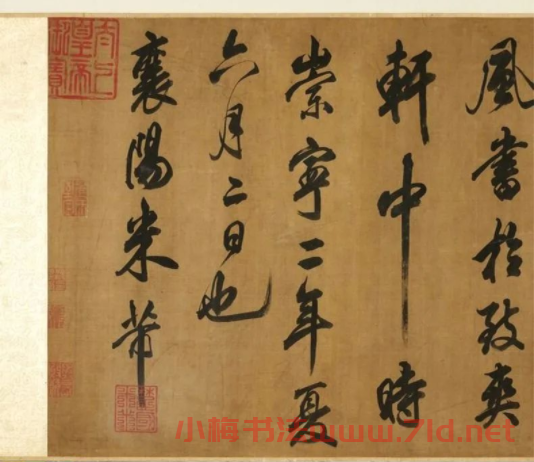 風書於致爽
軒中時
崇寧二年夏
六月二日也
襄陽米芾
小梅书法www.7ld.net